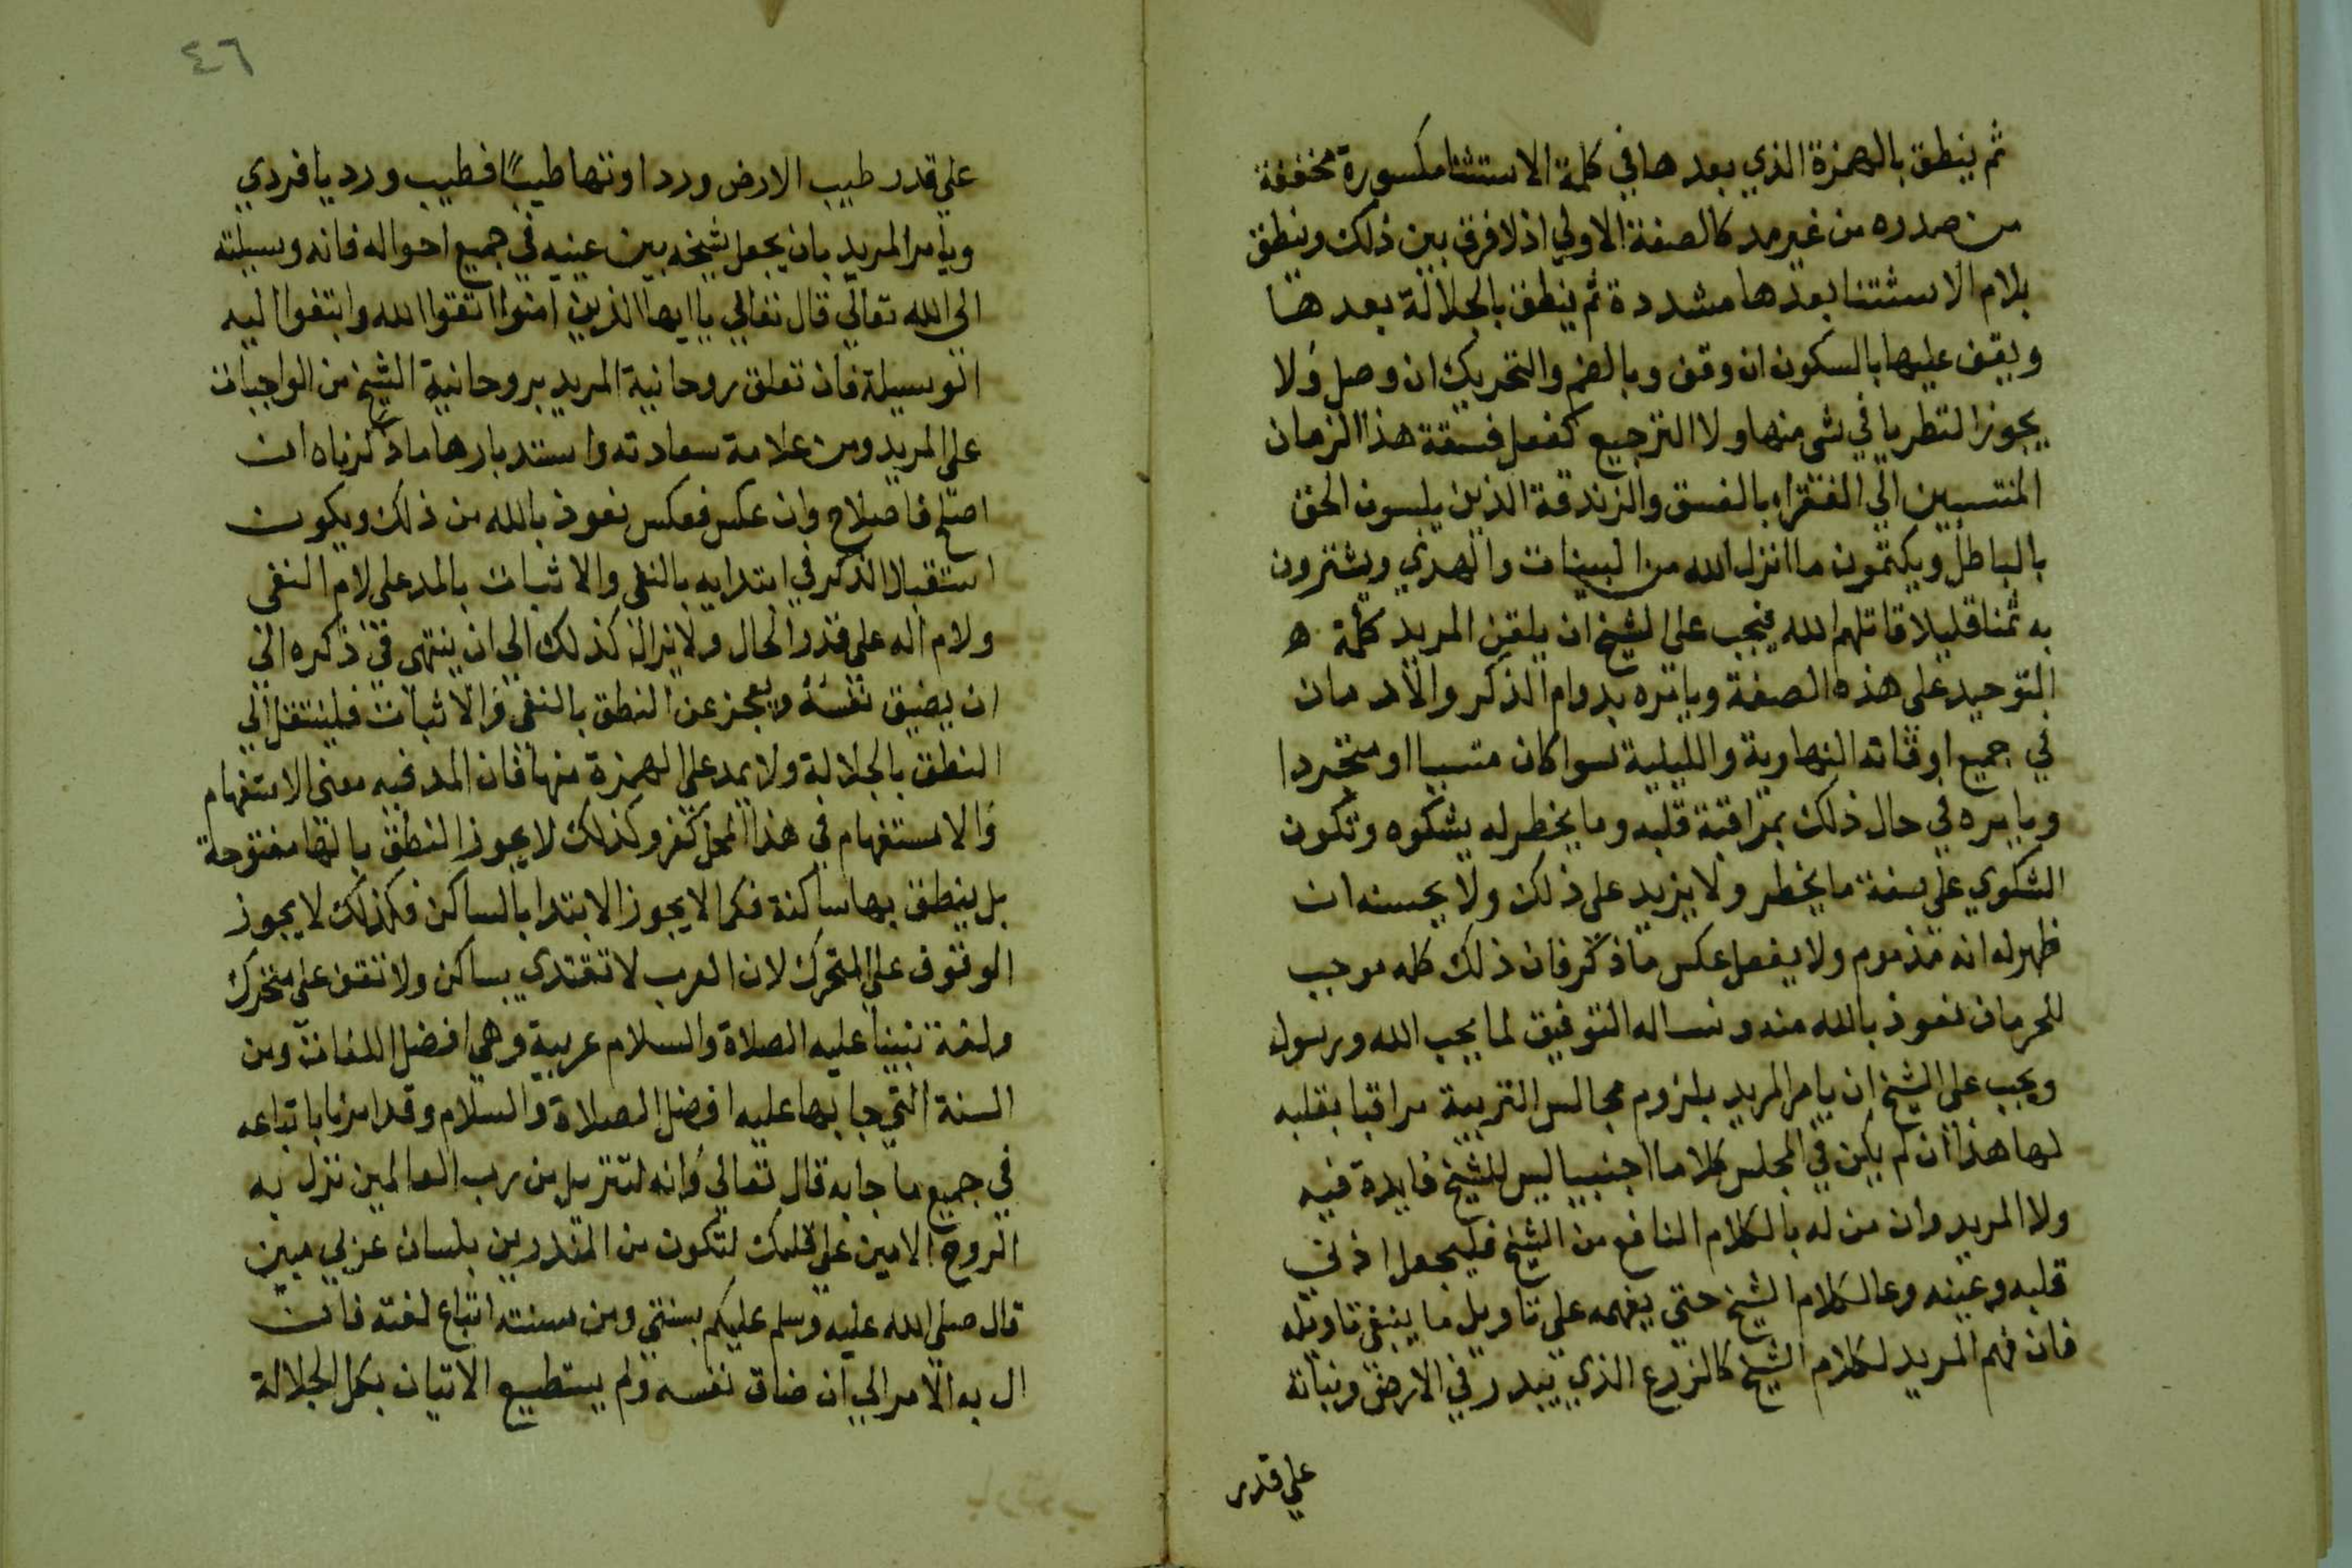 ثم ينطق بالهمزة الذي بعدها في كلمة الاستثنا مكسورة مخففة
من صدره من غير مد كالصفة الاولي اذ لا فرق بين ذلك وينطق
بلام الاستثنا بعدها مشددة ثم ينطق بالجلالة بعدها
ويقف عليها بالسكون ان وقف وبالضم والتحريك ان وصل ولا
يجوز التطريا في شي منها ولا الترجيع كفعل فسقة هذا الزمان
المنتسبين الي الفقراء بالفسق والزندقة الذين يلبسون الحق
بالباطل ويكتمون ما انزل الله من البينات والهدي ويشترون
به ثمنا قليلا قاتلهم الله فيجب علي الشيخ ان يلقن المريد كلمة ه
التوحيد علي هذه الصفة ويامره بدوام الذكر والادمان
في جميع اوقاته النهارية والليلية سوا كان متسببا او متجردا
ويامره في حال ذلك بمراقبة قلبه وما يخطر له يشكوه وتكون
الشكوي علي صفة ما يخطر ولا يزيد علي ذلك ولا يحسنه ان
ظهر له انه مذموم ولا يفعل عكس ما ذكر فان ذلك كله موجب
للحرمان نعوذ بالله منه ونساله التوفيق لما يحب الله ورسوله
ويجب علي الشيخ ان يامر المريد بلزوم مجالس التربية مراقبا بقلبه
لها هذا ان لم يكن في المجلس كلاما اجنبيا ليس للشيخ فايدة فيه
ولا المريد وان من له بالكلام النافع من الشيخ فليجعل اذني
قلبه وعينه وعا لكلام الشيخ حتي يفهمه علي تاويل ما ينبغي تاويله
فان فهم المريد لكلام الشيخ كالزرع الذي يبدر في الارض ونباته
علي قدر
٤٦
علي قدر طيب الارض وردا وتها طيبا فطيب ورديا فردي
ويامر المريد بان يجعل شيخه بين عينيه في جميع احواله فانه وسيلته
الي الله تعالي قال تعالي يا ايها الذين امنوا اتقوا الله وابتغوا اليه
الوسيلة فان تعلق روحانية المريد بروحانية الشيخ من الواجبات
علي المريد ومن علامة سعادته واستدبارها ماذكرناه ان
اصلح فاصلاح وان عكس فعكس نعوذ بالله من ذلك ويكون
استقبال الذكر في ابتدايه بالنفي والاثبات بالمد علي لام النفي
ولام اله علي قدر الحال ولايزال كذلك الي ان ينتهي في ذكره الي
ان يضيق نفسه ويعجز عن النطق بالنفي والاثبات فلينتقل الي
النطق بالجلالة ولا يمد علي الهمزة منها فان المد فيه معني الاستفهام
والاستفهام في هذا المحل كفر وكذلك لا يجوز النطق بالها مفتوحة
بل ينطق بها ساكنة فكما لا يجوز الابتدا بالساكن فكذلك لا يجوز
الوقوف علي المتحرك لان العرب لا تقتدي بساكن ولا تقف علي متحرك
ولغة نبينا عليه الصلاة والسلام عربية وهي افضل اللغات ومن
السنة التي جا بها عليه افضل الصلاة والسلام وقد امرنا باتباعه
في جميع ما جا به قال تعالي وانه لتنزيل من رب العالمين نزل به
الروح الامين علي قلبك لتكون من المنذرين بلسان عربي مبين
قال صلي الله عليه وسلم عليكم بسنتي ومن سنته اتباع لغته فان
ال به الامر الي ان ضاق نفسه ولم يستطيع الاتيان بكل الجلالة